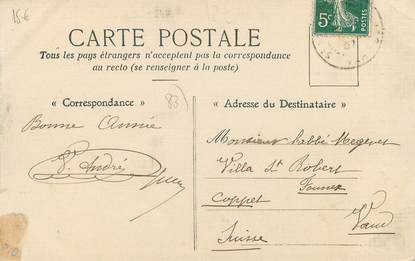 15 €
5c
POSTES
CARTE POSTALE
Tous les pays étrangers n'acceptent pas la correspondance
au recto (se renseigner à la poste)
« Correspondance »
83)
Bonne Année
P. André
« Adresse du Destinataire »
Monsieur l'abbé
Villa St Robert
Coppet
Vaud
Suisse